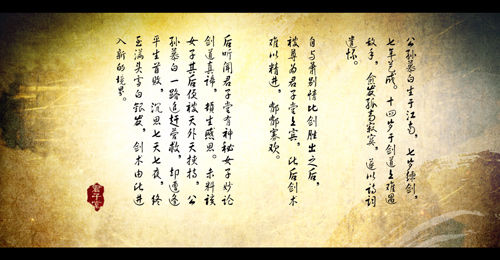 公孙慕白生于江南，七岁练剑，
七年有成。十四岁于剑道上难遇
敌手，愈发孤高寂寞，遂以诗词
遣怀。
自与萧别情比剑胜出之后，
被尊为君子堂上宾，此后剑术
难以精进，郁郁寡欢。
后听闻君子堂有神秘女子妙论
剑道真谛，横生感思。未料该
女子其后便被天外天挟持，公
孙慕白一路追赶营救，却遭逢
平生首败，沉思七天七夜，终
至满头雪白银发，剑术由此进
入新的境界。
君子堂